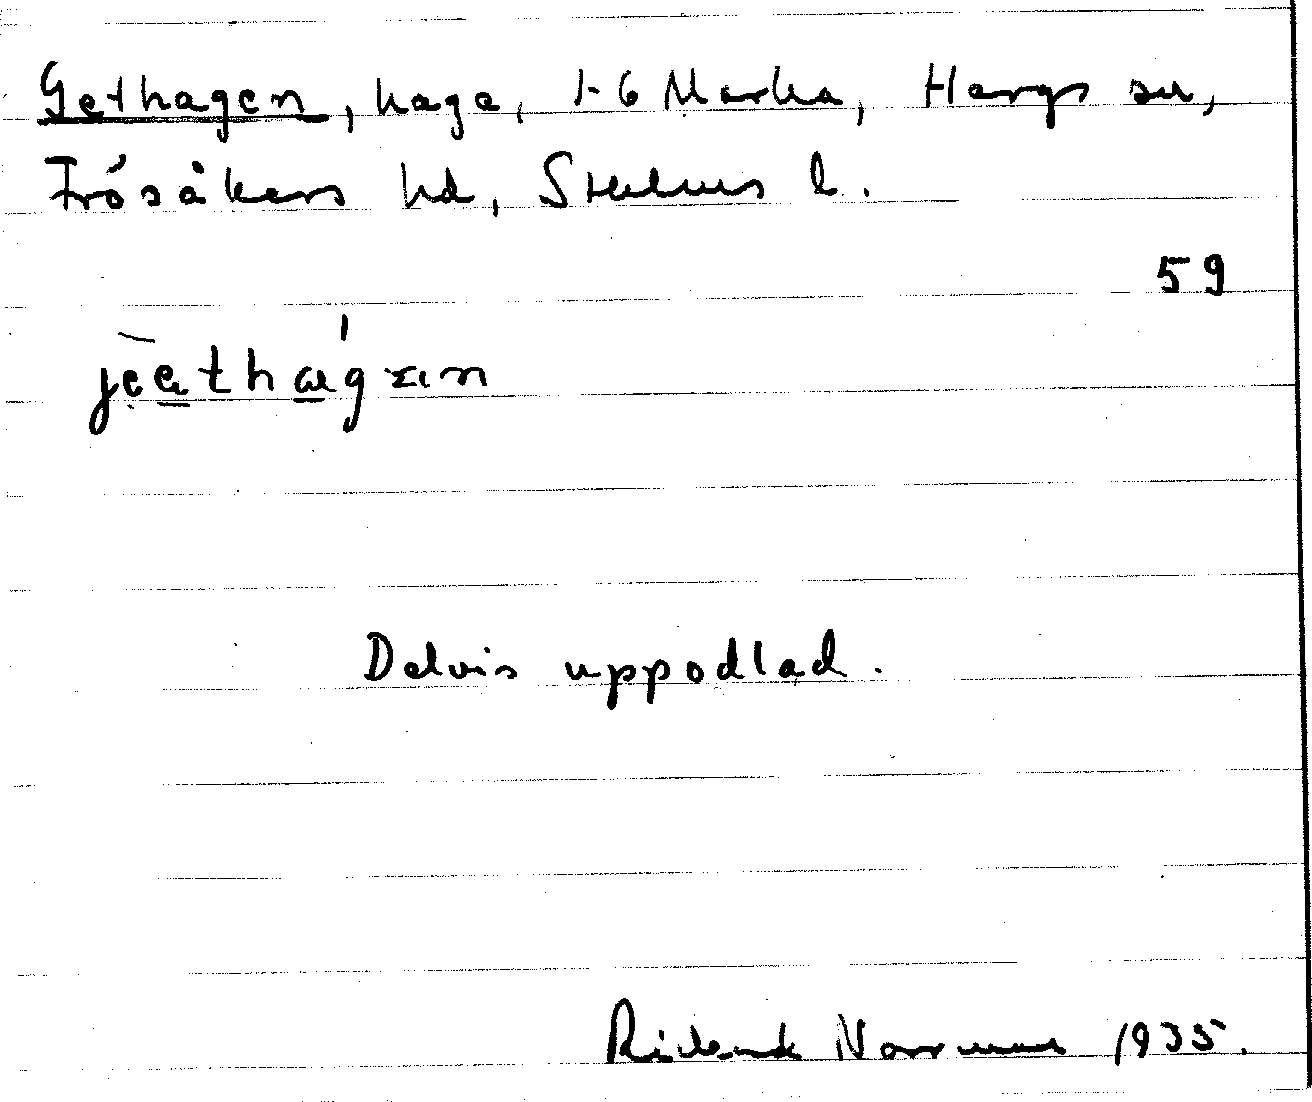 Gethagen, hage, 1-6 Marka, Hargs sn,
Frösåkers hd, Sthlms l.
59
jèathágan
Delvis uppodlad.
Rickard Norrman 1935.